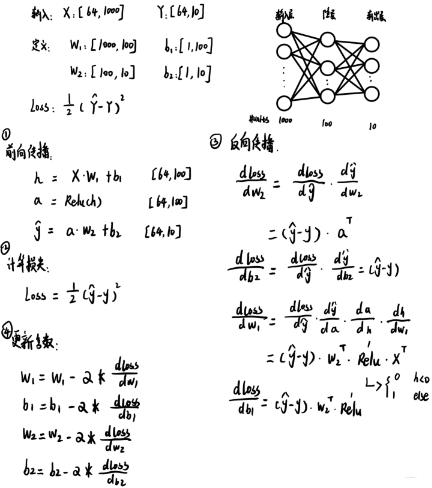 输入: X:[64,1000] Y:[64,10]
定义: W₁:[1000,100] b₁:[1,100]
W₂:[100,10] b₂:[1,10]
Loss: 1/2 (Ŷ-Y)²
输入层 隐层 输出层
#units 1000 100 10
①
前向传播:
h = X·W₁+b₁ [64,100]
a = Relu(h) [64,100]
ŷ = a·w₂+b₂ [64,10]
②
计算损失:
Loss = 1/2 (ŷ-y)²
③ 反向传播:
dloss/dw₂ = dloss/dŷ · dŷ/dw₂
= (ŷ-y)·aᵀ
dloss/db₂ = dloss/dŷ · dŷ/db₂ = (ŷ-y)
dloss/dw₁ = dloss/dŷ · dŷ/da · da/dh · dh/dw₁
= (ŷ-y)·w₂ᵀ·Relu'·Xᵀ
↳ { 0 h<0
1 else
dloss/db₁ = (ŷ-y)·w₂ᵀ·Relu'
④更新参数:
W₁ = W₁ - 2* dloss/dw₁
b₁ = b₁ - 2* dloss/db₁
W₂ = W₂ - 2* dloss/dw₂
b₂ = b₂ - 2* dloss/db₂